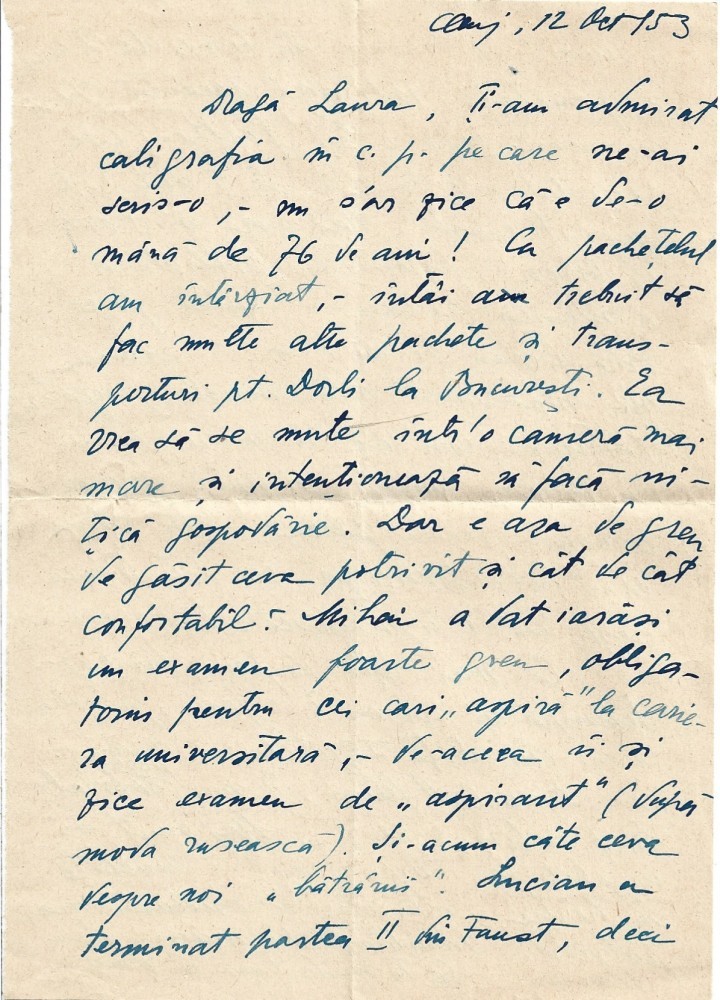 Cluj, 12 Oct 53
Dragă Laura, Ți-am admirat
caligrafia în c. p. pe care ne-ai
scris-o, - nu s'ar zice că e de-o
mână de 76 de ani! Cu pachețelul
am întârziat, - întâi am trebuit să
fac multe alte pachete și trans-
porturi pt. Dorli la București. Ea
vrea să se mute într'o cameră mai
mare și intenționează să facă ni-
țică gospodărie. Dar e așa de greu
de găsit ceva potrivit și cât de cât
confortabil! Mihai a dat iarăși
un examen foarte greu, obliga-
toriu pentru cei cari „aspiră" la carie-
ra universitară, - de-aceea îi și
zice examen de „aspirant" (după
moda rusească). Și-acum câte ceva
despre noi „bătrânii". Lucian a
terminat partea II din Faust, deci